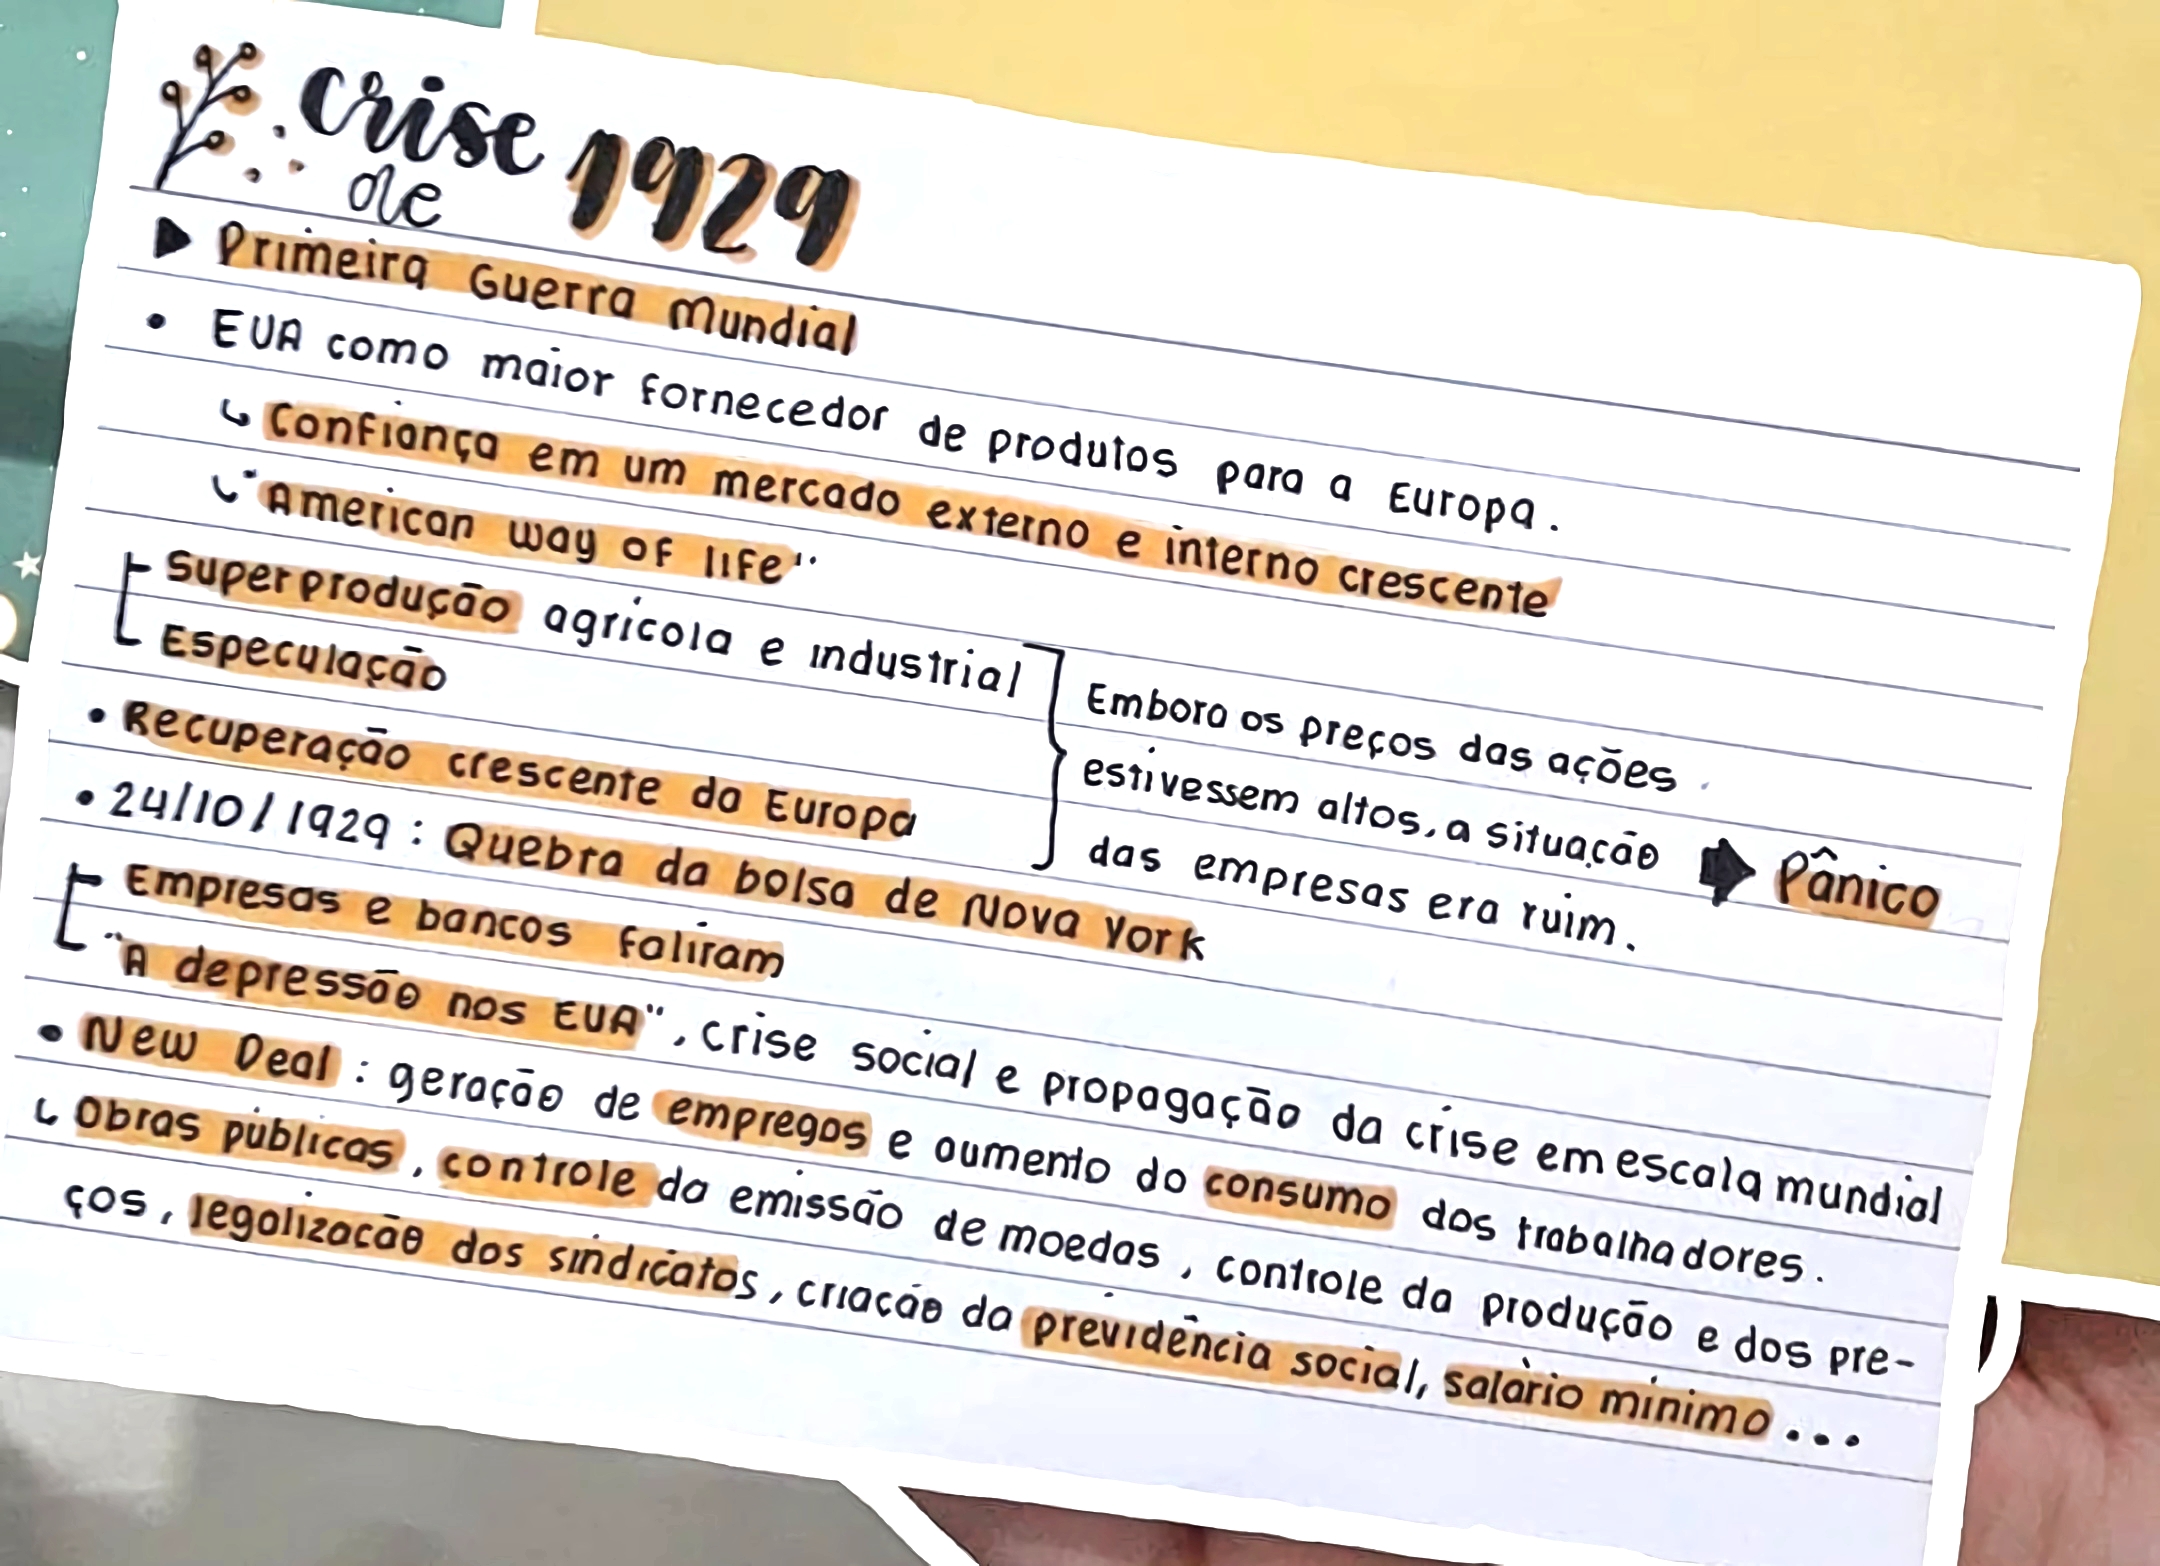 Crise
de 1929
▶ Primeira Guerra Mundial
• EUA como maior fornecedor de produtos para a Europa.
↳ Confiança em um mercado externo e interno crescente
↳ "American way of life"
Superprodução agrícola e industrial
Especulação
• Recuperação crescente da Europa
Embora os preços das ações
estivessem altos, a situação
das empresas era ruim.
➡ Pânico
• 24/10/1929: Quebra da bolsa de Nova York
Empresas e bancos faliram
"A depressão nos EUA", crise social e propagação da crise em escala mundial
• New Deal: geração de empregos e aumento do consumo dos trabalhadores.
↳ Obras públicas, controle da emissão de moedas, controle da produção e dos pre-
ços, legalizacão dos sindicatos, criacão da previdência social, salário mínimo...